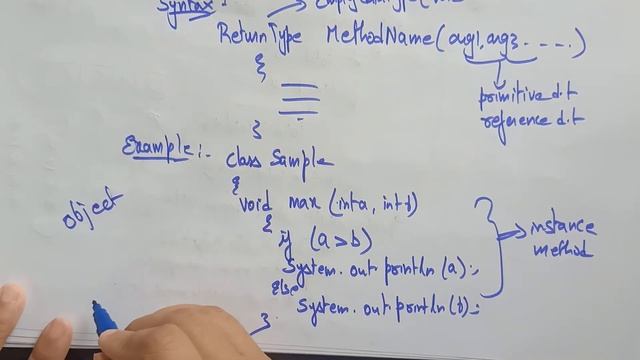 Syntax :
ReturnType MethodName(arg1, arg2 - - - -)
{
primitive d.t
reference d.t
}
Example:- class Sample
{
void max (int a, int b)
{
if (a>b)
System.out.println(a);
else
System.out.println(b);
}
instance
method
object